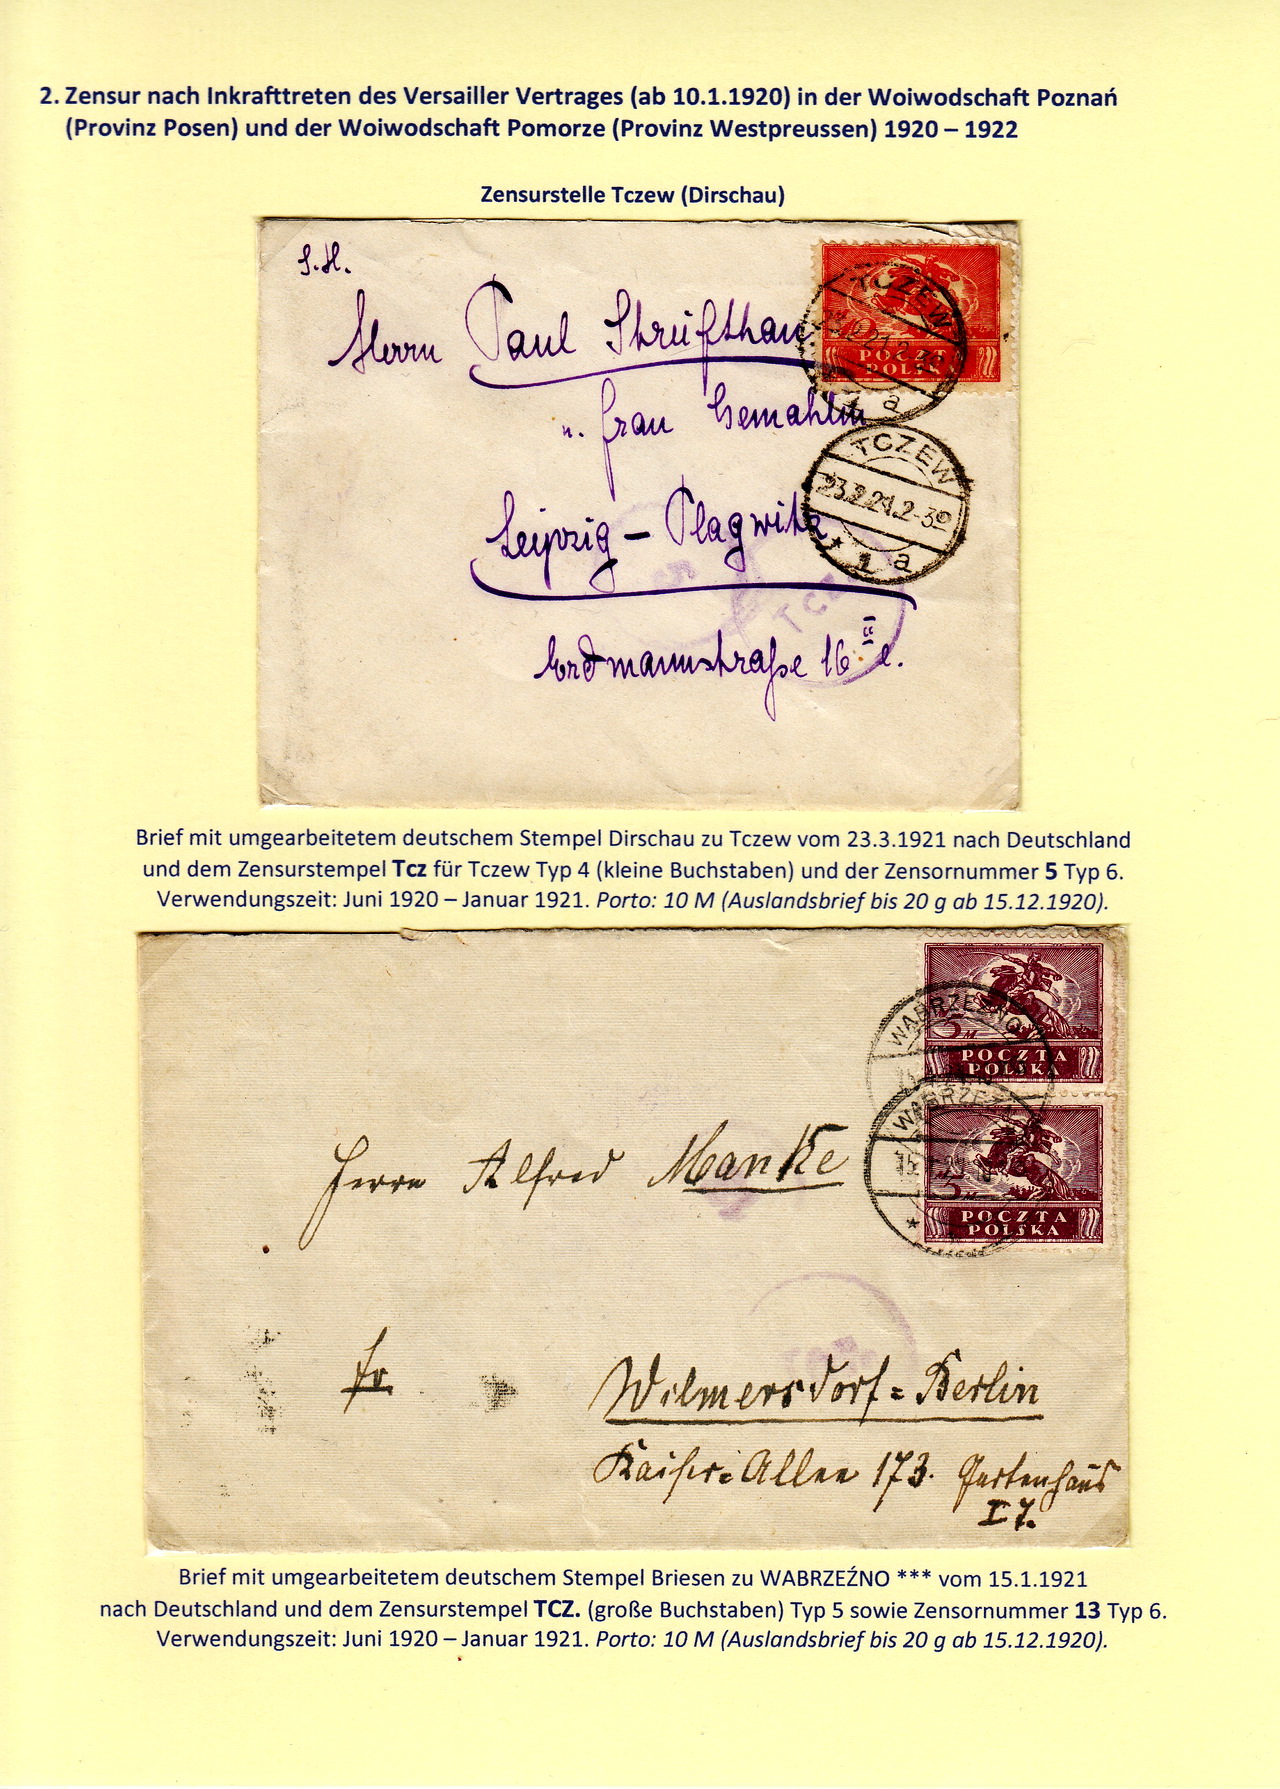 2. Zensur nach Inkrafttreten des Versailler Vertrages (ab 10.1.1920) in der Woiwodschaft Poznań
(Provinz Posen) und der Woiwodschaft Pomorze (Provinz Westpreussen) 1920 – 1922
Zensurstelle Tczew (Dirschau)
S.H.
Herrn Paul
u. Frau Gemahlin
Leipzig – Plagwitz
Erdmannstraße 16
TCZEW
POCZTA
POLSKA
a
TCZEW
23.2.21.2-30
* 1 a
Brief mit umgearbeitetem deutschem Stempel Dirschau zu Tczew vom 23.3.1921 nach Deutschland
und dem Zensurstempel Tcz für Tczew Typ 4 (kleine Buchstaben) und der Zensornummer 5 Typ 6.
Verwendungszeit: Juni 1920 – Januar 1921. Porto: 10 M (Auslandsbrief bis 20 g ab 15.12.1920).
WABRZEŹNO
5 M
POCZTA
POLSKA
5 M
POCZTA
POLSKA
Herrn Alfred Manke
Wilmersdorf = Berlin
Kaiser=Allee 173. Gartenhaus
Brief mit umgearbeitetem deutschem Stempel Briesen zu WABRZEŹNO *** vom 15.1.1921
nach Deutschland und dem Zensurstempel TCZ. (große Buchstaben) Typ 5 sowie Zensornummer 13 Typ 6.
Verwendungszeit: Juni 1920 – Januar 1921. Porto: 10 M (Auslandsbrief bis 20 g ab 15.12.1920).